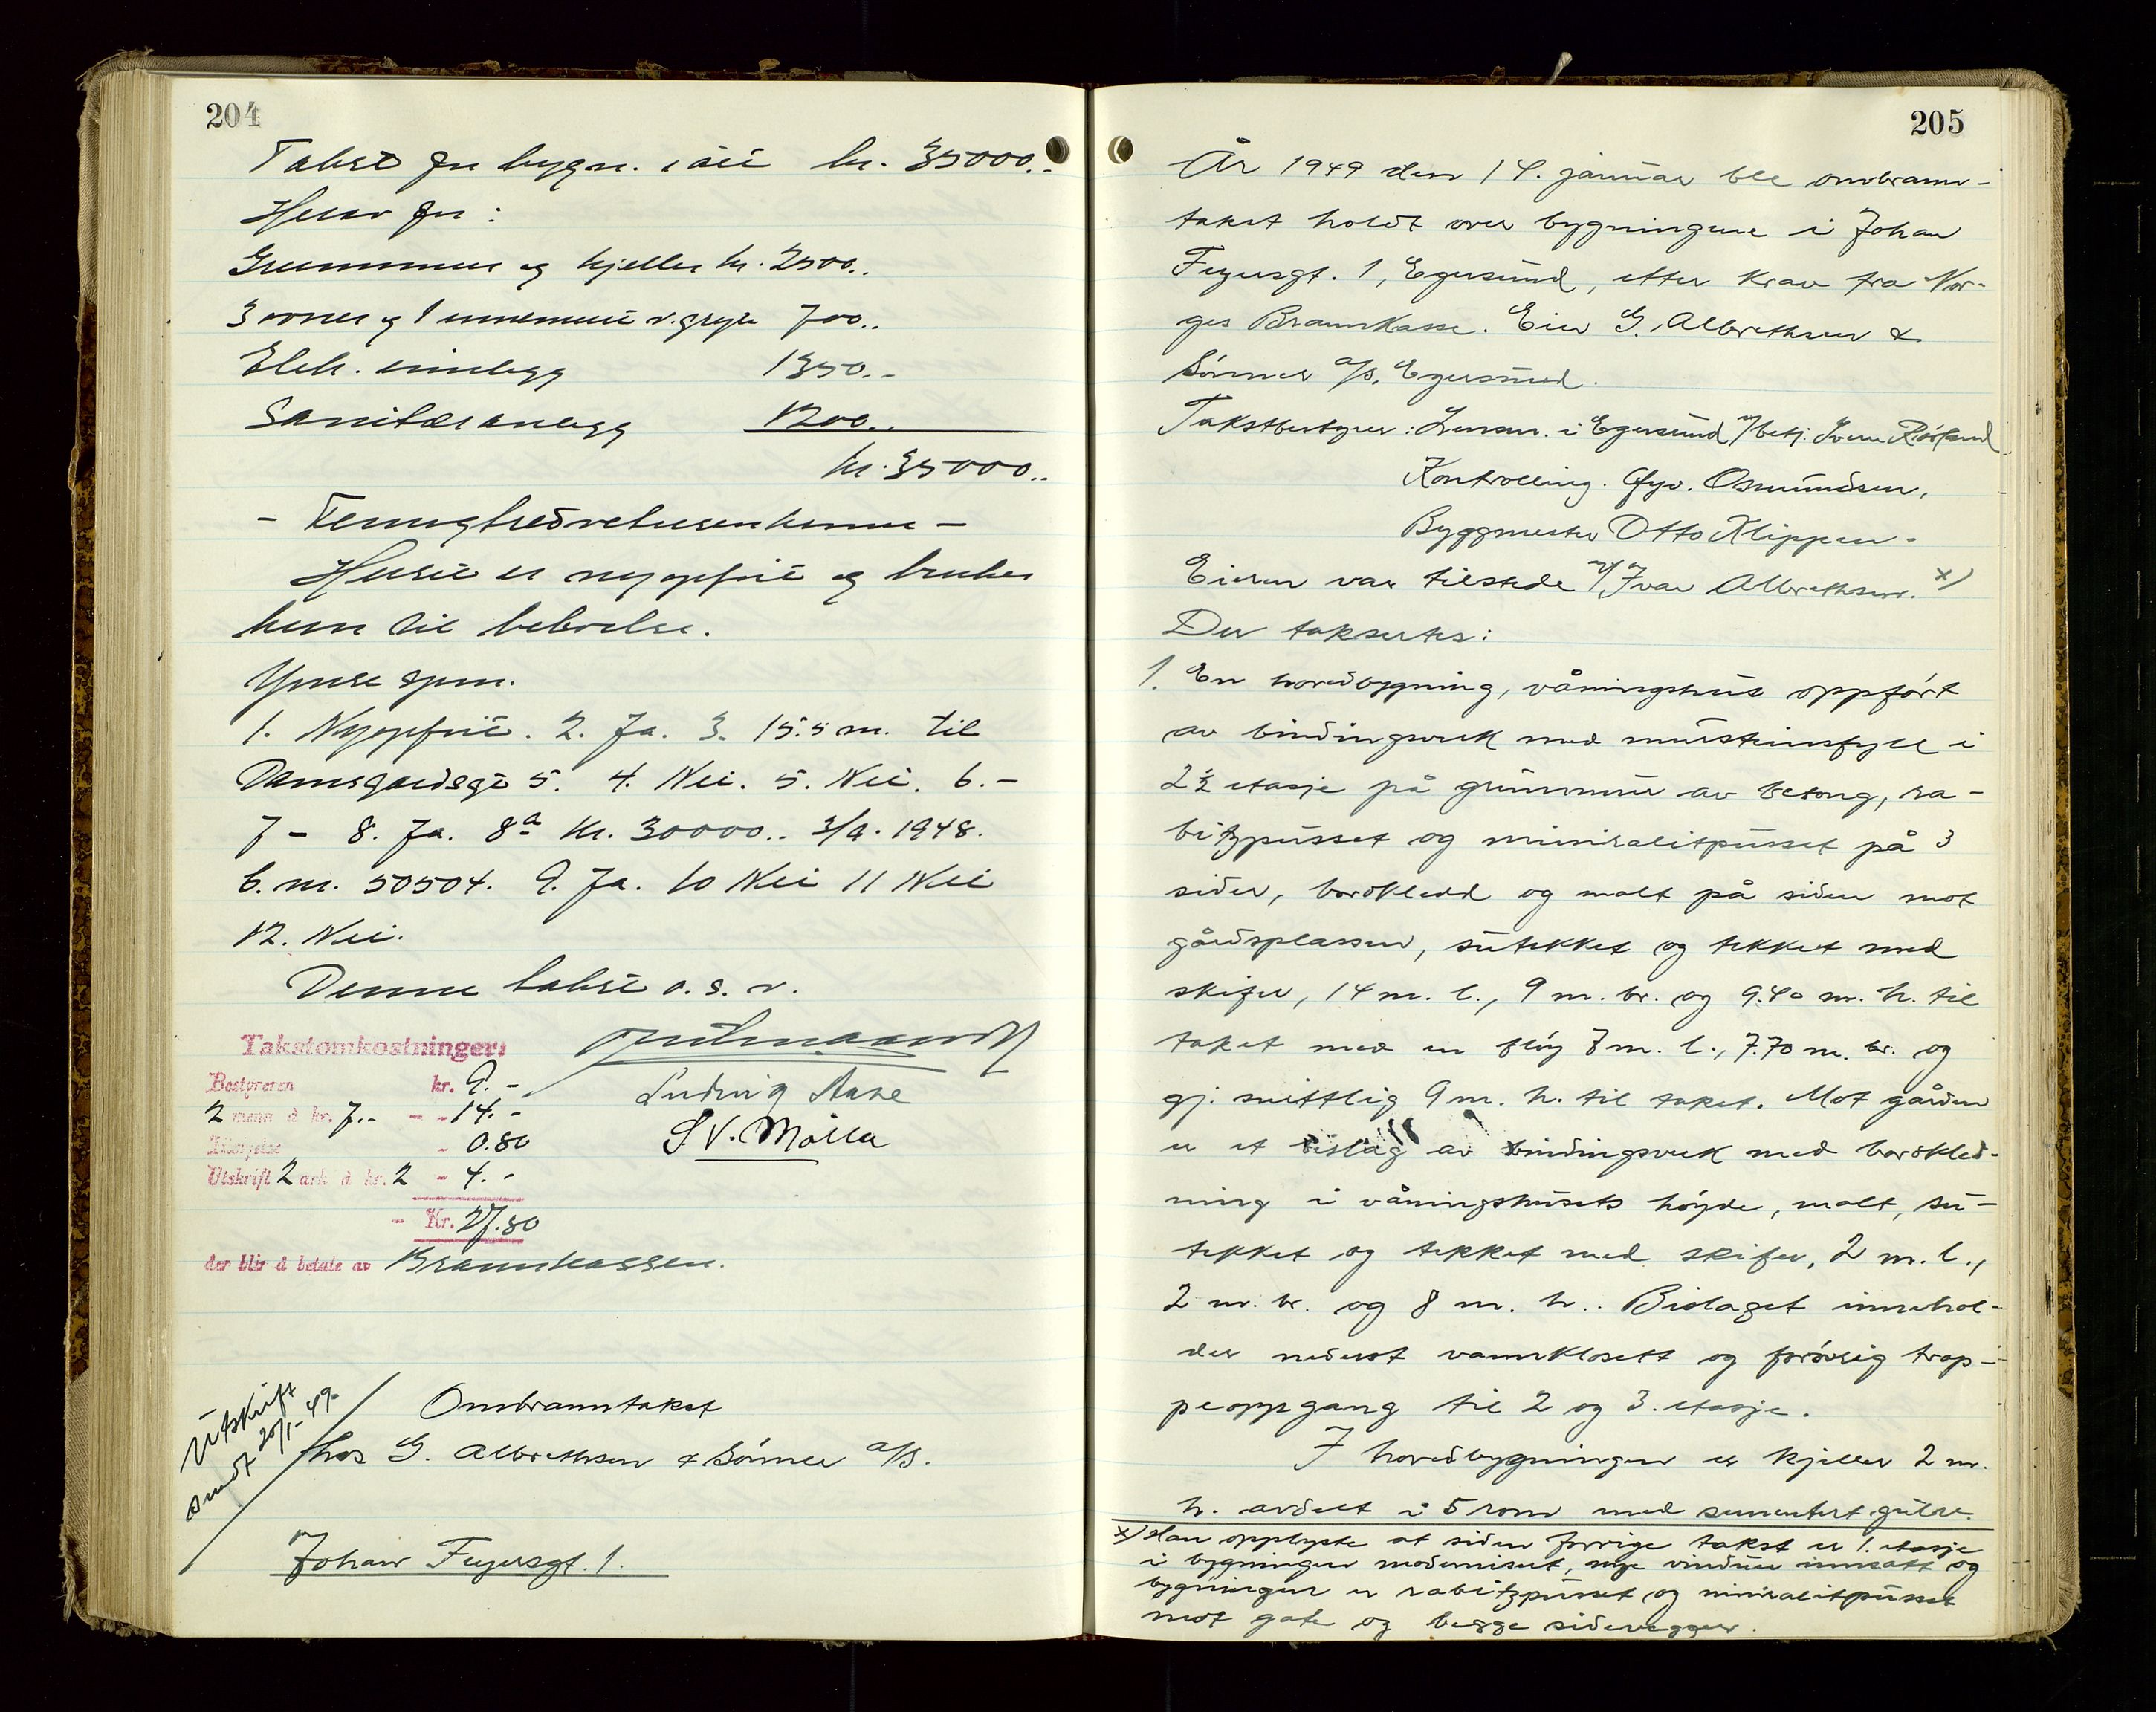 204
Takst for bygn. i alt kr. 35000..
Herav for:
Grunnmur og kjeller kr. 2500..
3 ovner og 1 innemuret v. gryte 700..
Elek. innlegg 1350.-
Sanitæranlegg 1200..
kr. 35000..
- Tennghedrelusenkenne -
Huset er nyoppført og brukes
kun til beboelse.
Ymse spm.
1. Nyoppført. 2. Ja. 3. 15.5 m. til
Damsgårdsgt 5. 4. Nei. 5. Nei. 6. -
7 - 8. Ja. 8a Kr. 30000.. 3/9. 1948.
b. nr. 50504. 9. Ja. 10 Nei 11 Nei
12. Nei.
Denne takst o. s. v.
Takstomkostninger:
Bestyreren kr. 9.-
2 menn à kr. 7.- - - 14.-
- 0.80
Utskrift 2 ark à kr. 2 - 4.-
- Kr. 27.80
der blir å betale av Brannkassen.
Ludvig Aase
S V. Mølla
Utskrift
sendt 20/1-49-
Ombranntakst
hos G. Albrethsen & Sønner A/S.
Johan Feyersgt. 1.
205
År 1949 den 14. januar ble ombrann-
takst holdt over bygningene i Johan
Feyersgt. 1, Egersund, etter krav fra Nor-
ges Brannkasse. Eier G. Albrethsen &
Sønner A/S, Egersund.
Takstbestyrer: Lensm. i Egersund v/betj. Sven Røsland
Kontrolling. Gyv. Osmundsen,
Byggmester Otto Klippen.
Eieren var tilstede v/ Ivar Albrethsen. x)
Der taksertes:
1. En hovedbygning, våningshus oppført
av bindingsverk med murstensfyll i
2 1/2 etasje på grunnmur av betong, ra-
bitzpusset og mineralitpusset på 3
sider, bordkledd og malt på siden mot
gårdsplassen, sutekket og tekket med
skifer, 14 m. l., 9 m. br. og 9.40 m. h. til
taket med en fløy 8 m. l., 7.70 m. br. og
gj. snittlig 9 m. h. til taket. Mot gården
er et bislag av bindingsverk med bordkled-
ning i våningshusets høyde, malt, su-
tekket og tekket med skifer, 2 m. l.,
2 m. br. og 8 m. h.. Bislaget innehol-
der nederst vannklosett og forøvrig trap-
peoppgang til 2 og 3. etasje.
I hovedbygningen er kjeller 2 m.
h. avdelt i 5 rom med sementert gulv.
x) Han opplyste at siden forrige takst er 1. etasje
i bygningen modernisert, nye vinduer innsatt og
bygningen er rabitzpusset og mineralitpusset
mot gate og begge sidevegger.